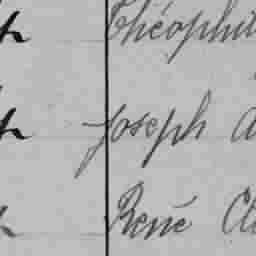 Théophil
Joseph
René Cl